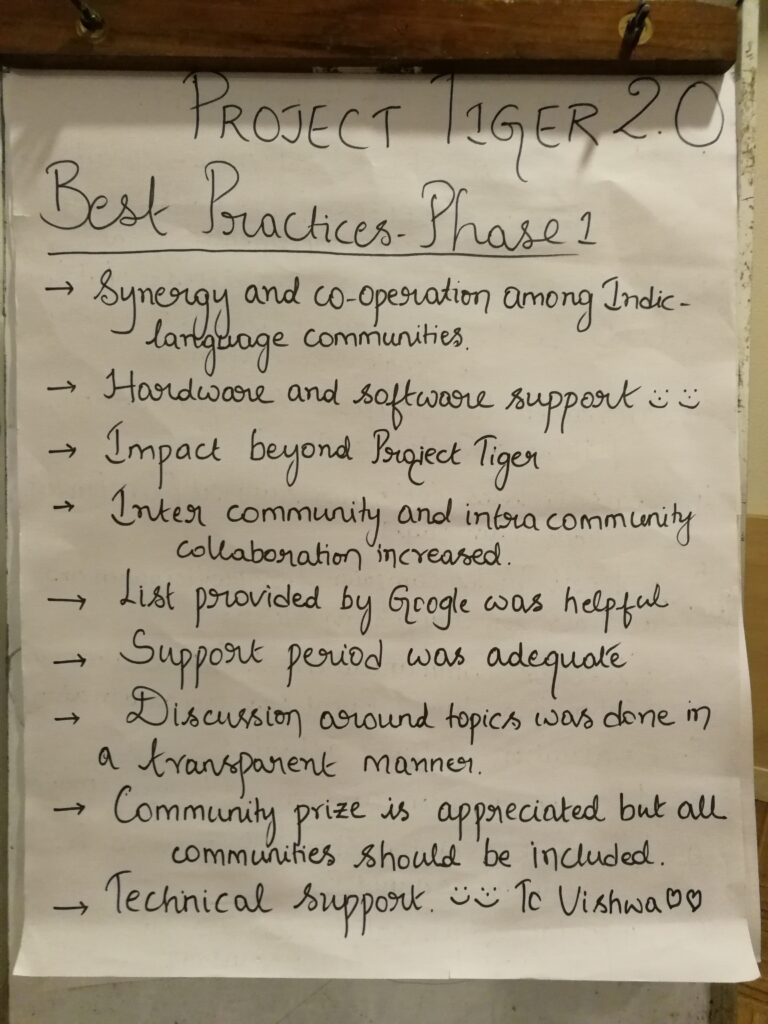 PROJECT TIGER 2.0
Best Practices - Phase 1
→ Synergy and co-operation among Indic-
language communities.
→ Hardware and software support :) :)
→ Impact beyond Project Tiger
→ Inter community and intra community
collaboration increased.
→ List provided by Google was helpful
→ Support period was adequate
→ Discussion around topics was done in
a transparent manner.
→ Community prize is appreciated but all
communities should be included.
→ Technical support. :) :) To Vishwa ♡♡